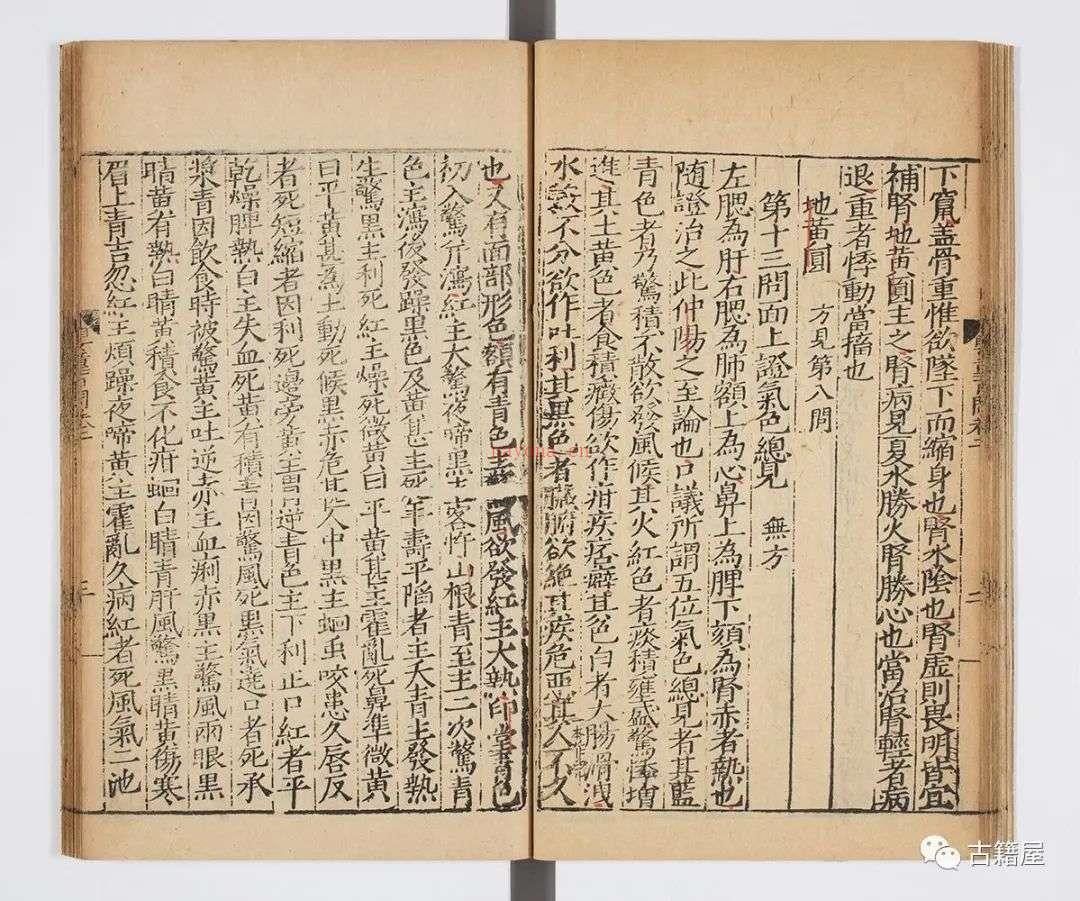 下竄蓋骨重惟欲墜下而縮身也腎水陰也腎虛則畏明皆宜
補腎地黃圓主之腎病見夏水勝火腎勝心也當治腎輕者病
退重者悸動當搐也
地黃圓 方見第八問
第十三問面上證氣色總見 無方
左腮為肝右腮為肺額上為心鼻上為脾下頦為腎赤者熱也
隨證治之此仲陽之至論也 議所謂五位氣色總見者其藍
青色者乃驚積不散欲發風候其火紅色者痰積壅盛驚悸增
進其土黃色者食積癥傷欲作疳疾痞癖其色白者大腸滑洩
水穀不分欲作吐利其黑色者臟腑欲絶其疾危惡其人不久
也又有面部形色額有青色主 風欲發紅主大熱印堂青色
初入驚 瀉紅主大驚夜啼黑主客忤山根青至主二次驚青
色主瀉夜發躁黑色及黃甚主死年壽平陷者主夭青主發熱
生驚黑主利死紅主燥死微黃曰平黃甚主霍亂死鼻準微黃
曰平黃甚為土動死候黑赤危甚 人中黑主蛔虫咬患久唇反
者死短縮者因利死邊旁黃主胃逆青色主下利 正口紅者平
乾燥脾熱白主失血死黃有積青因驚風死黑氣遶口者死承
漿青因飲食時被驚黃主吐逆赤主血痢赤黑主驚風兩眼黑
睛黃有熱白睛黃積食不化疳蛔白睛青肝風驚黑睛黃傷寒
眉上青吉忽紅主煩躁夜啼黃主霍亂久病紅者死風氣二池
二
三
nayona.cn
古籍屋